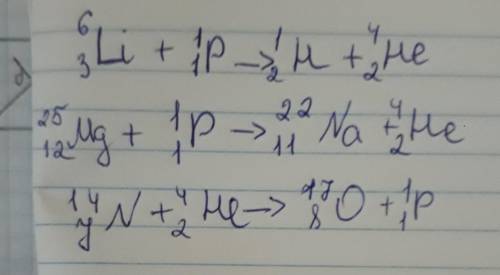 ⁶₃Li + ¹₁P → ¹₂H + ⁴₂He
²⁵₁₂Mg + ¹₁P → ²²₁₁Na + ⁴₂He
¹⁴₇N + ⁴₂He → ¹⁷₈O + ¹₁P